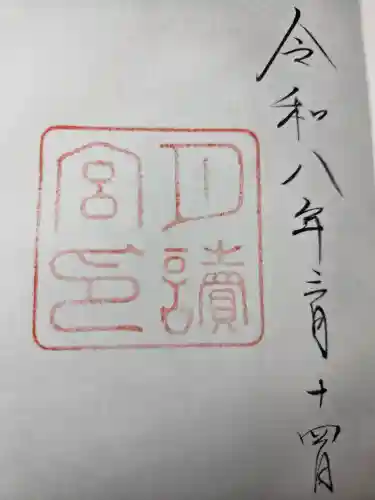 令和八年三月十四日
月讀
宮印